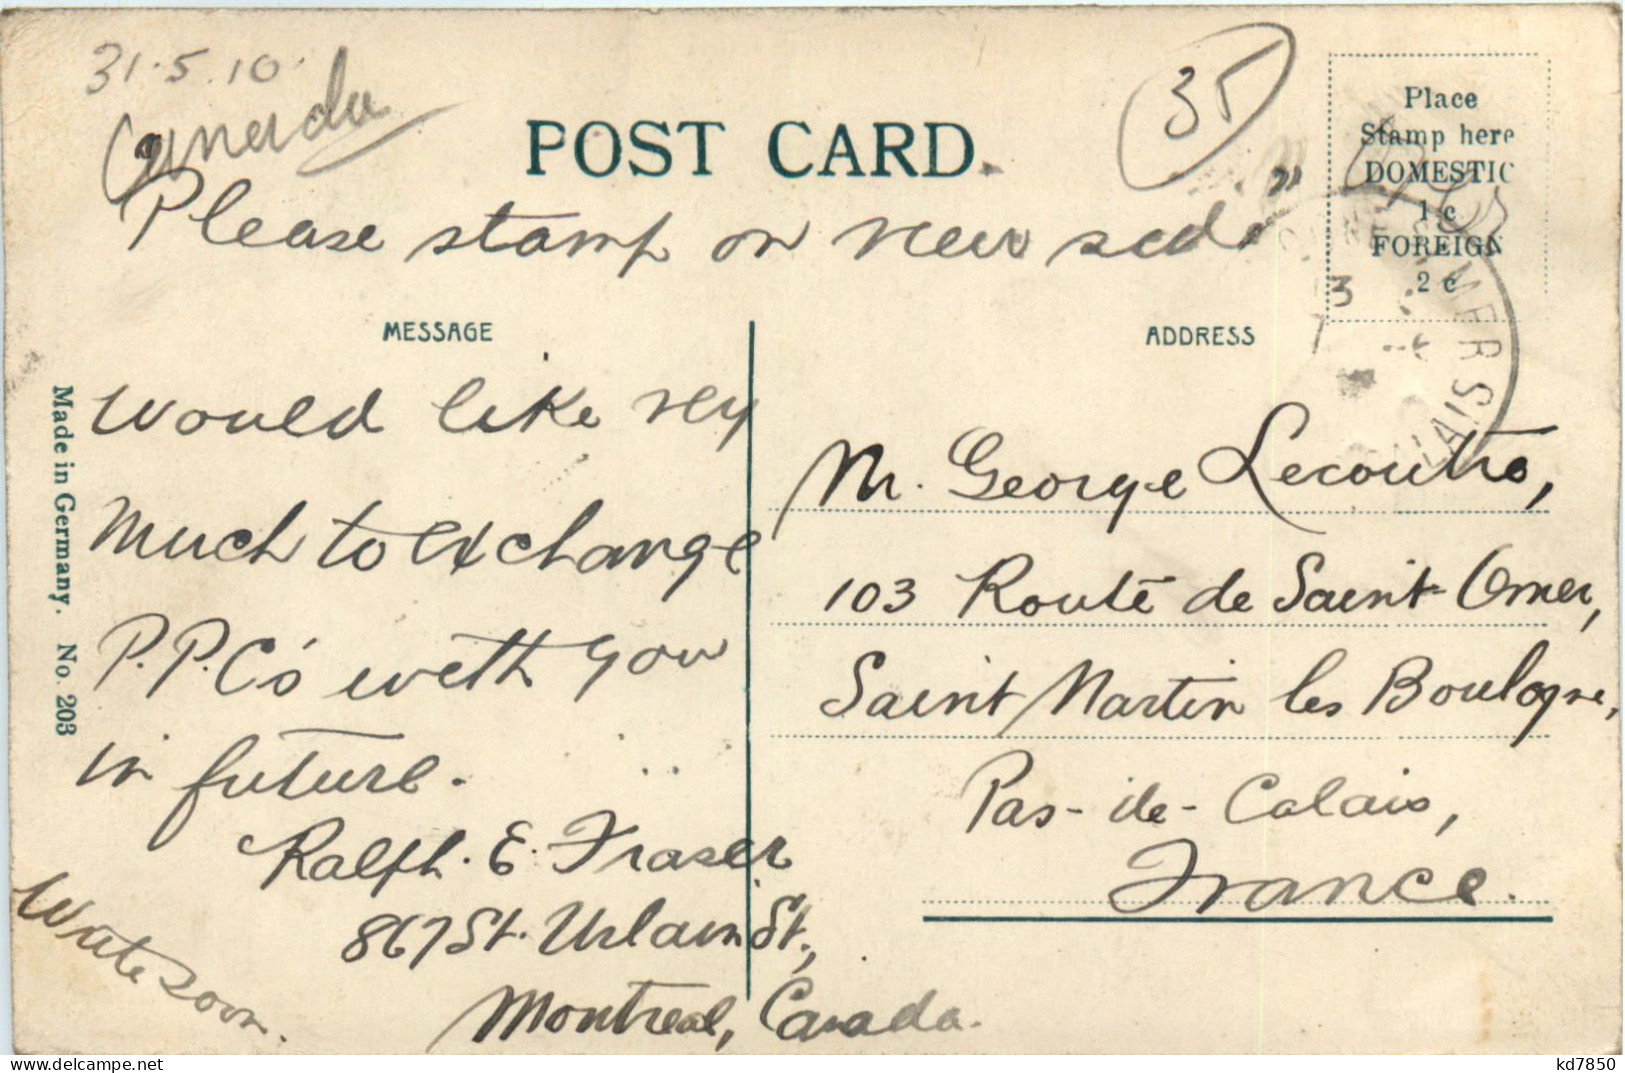 31.5.10.
Canada
35
POST CARD.
Place
Stamp here
DOMESTIC
1 c
FOREIGN
2 c
Please stamp on view side
MESSAGE
ADDRESS
would like very
much to exchange
P.P.C's with you
in future.
Ralph. E. Fraser
867 St. Urbain St.,
Montreal, Canada.
Write soon.
Made in Germany. No. 203
Mr. George Lecoutre,
103 Route de Saint-Omer,
Saint Martin les Boulogne,
Pas-de-Calais,
France.
MER
kd7850